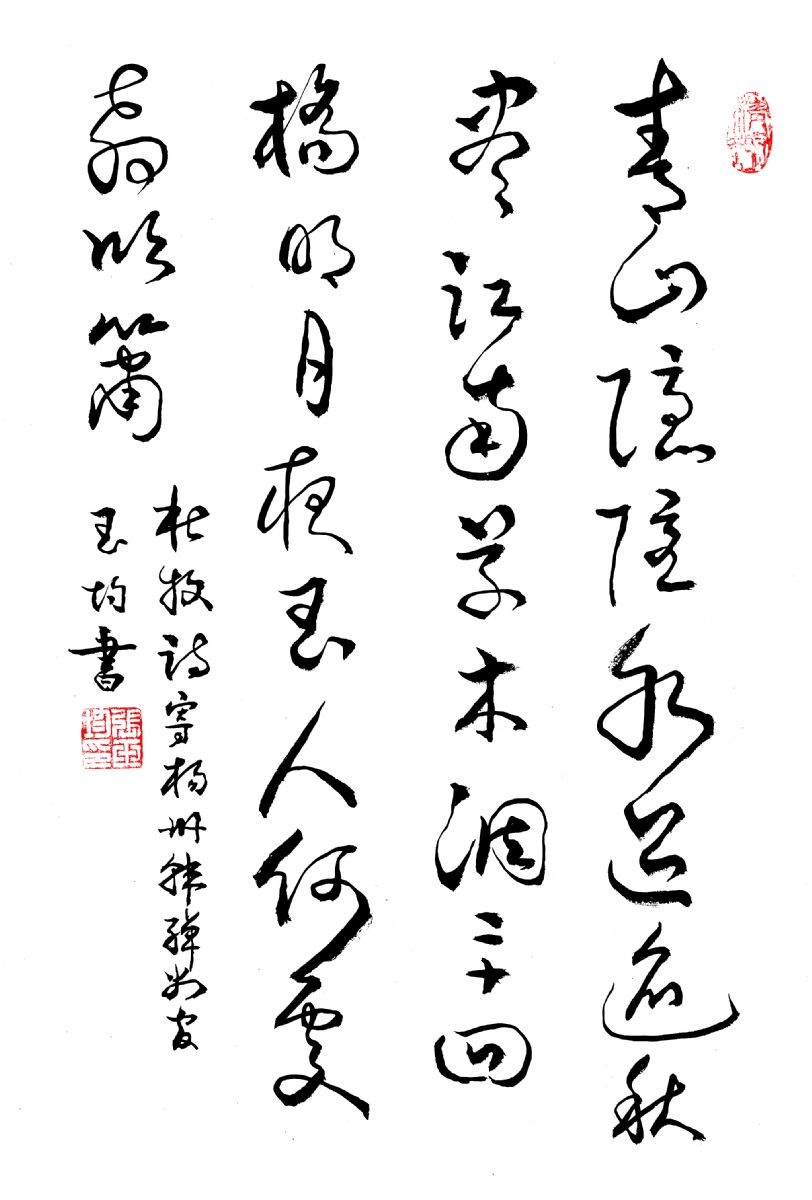 青山隱隱水迢迢秋
盡江南草木凋二十四
橋明月夜玉人何處
教吹簫
杜牧詩寄楊州韓綽判官
玉均書
張玉均印